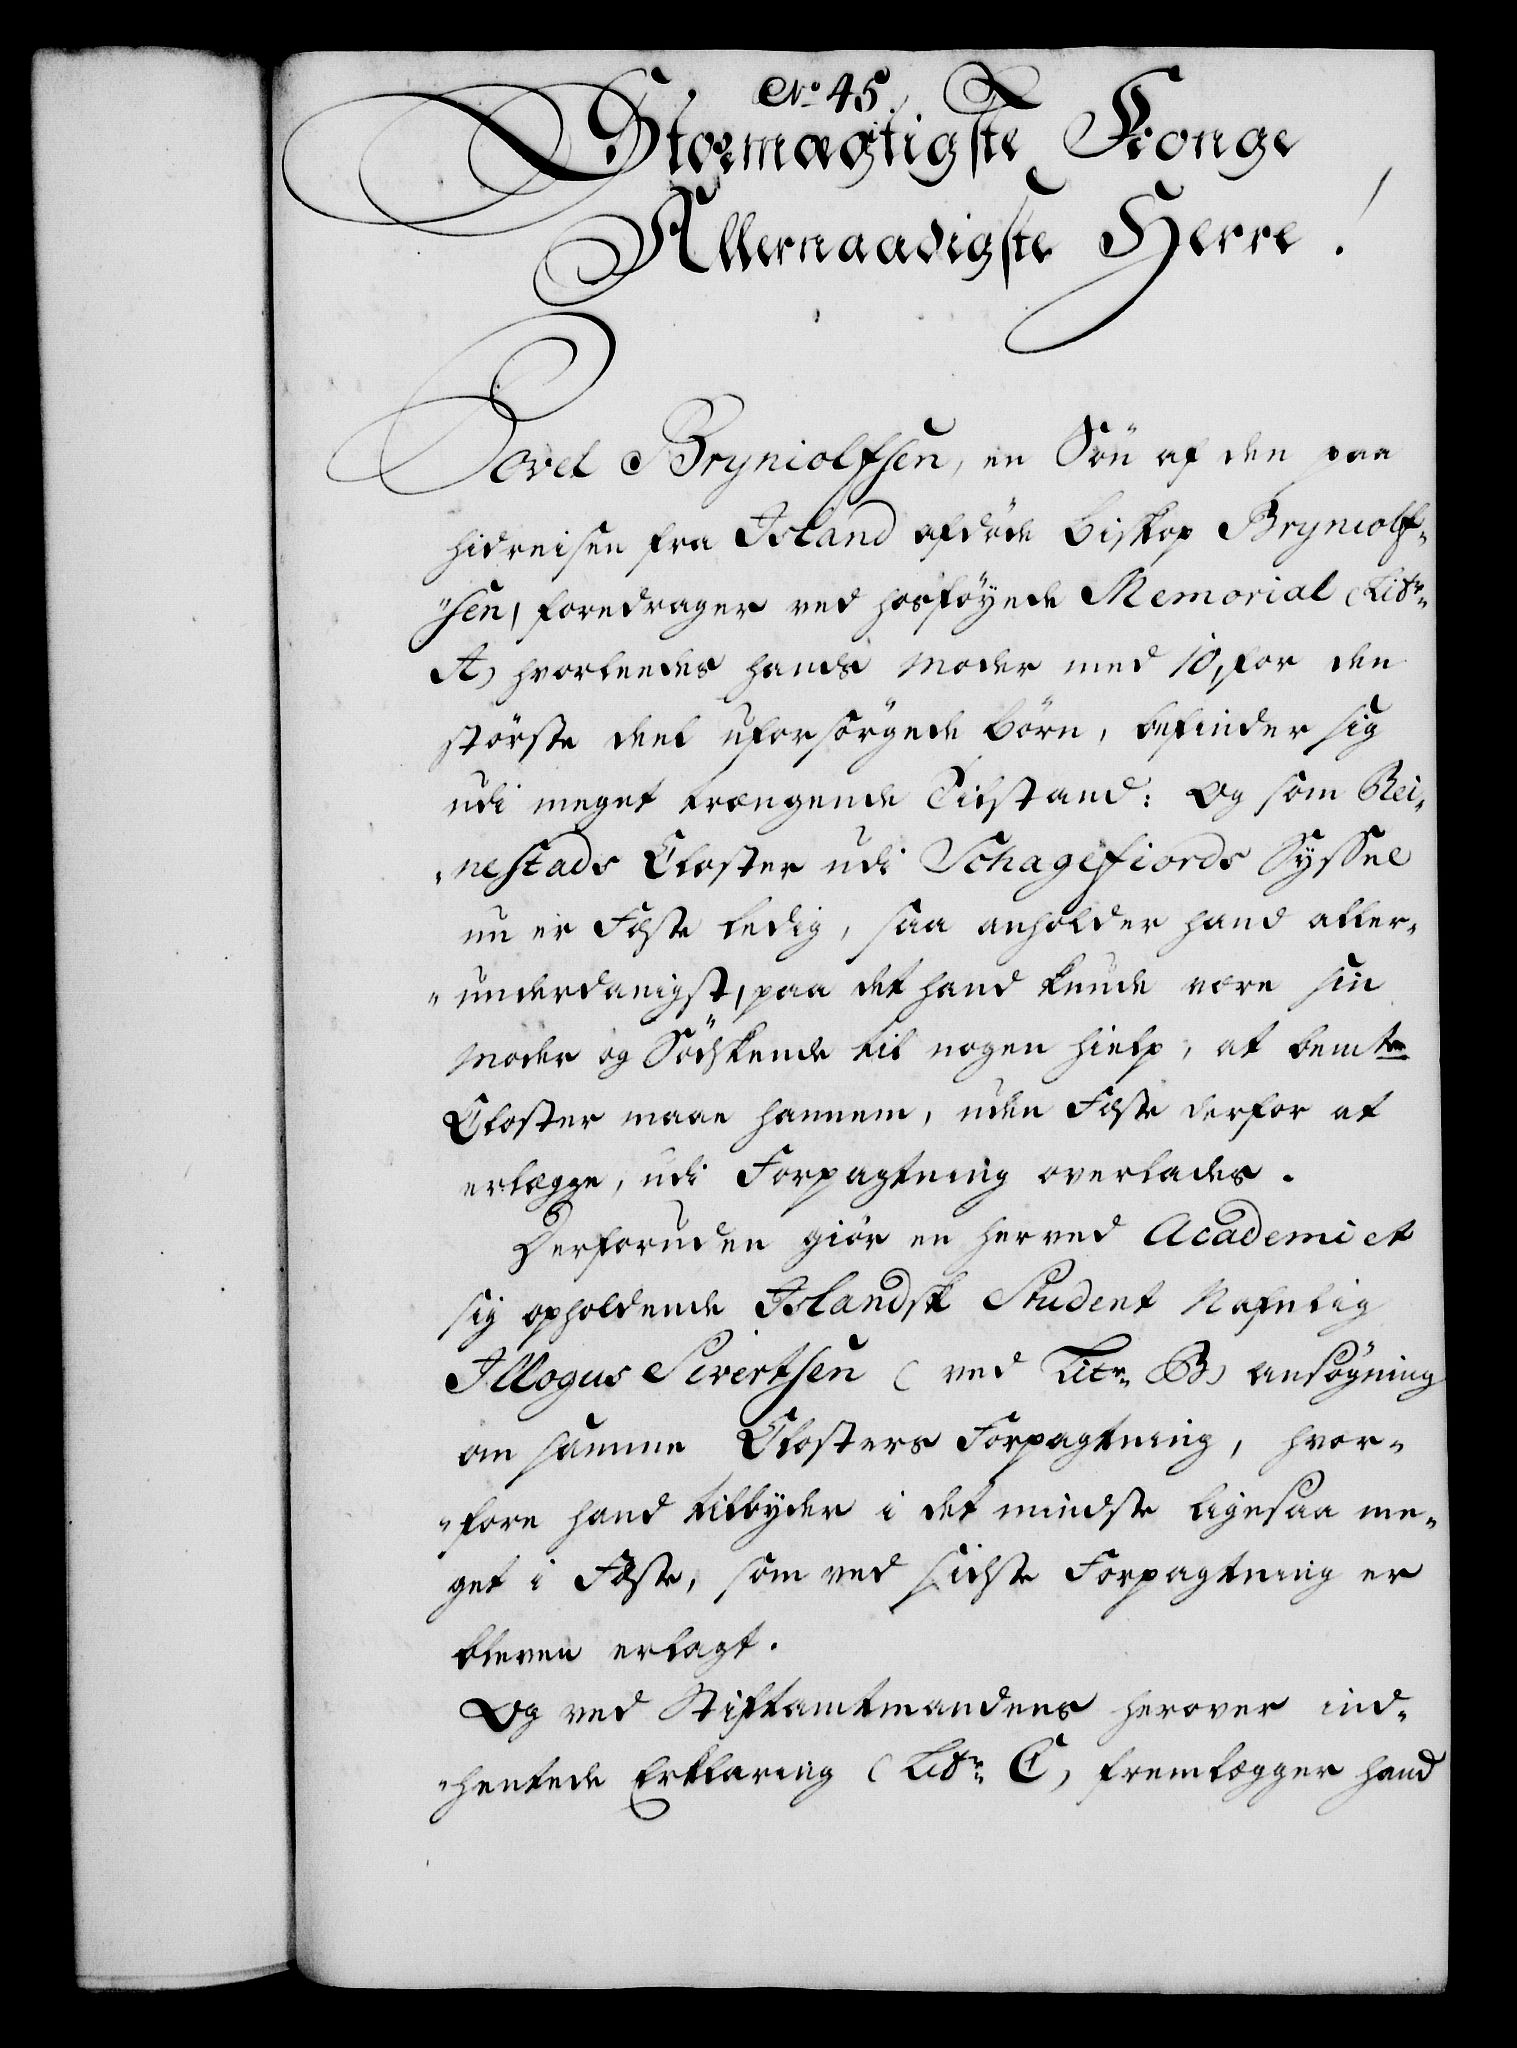 No. 45.
Stormægtigste Konge
Allernaadigste Herre!
Povel Bryniolfsen, en Søn af den paa
hidreisen fra Island afdøde Biskop Bryniolf-
"sen, foredrager ved hosføyede Memorial (Litr.
A) hvorledes hands Moder med 10, for den
største deel uforsørgede Børn, befinder sig
udi meget trængende Tilstand: Og som Rei-
"nestads Closter udi Schagefiords Syssel
nu er Fæste ledig, saa anholder hand aller-
"underdanigst, paa det hand kunde være sin
Moder og Sødskende til nogen hielp, at bemte
Closter maae hannem, uden Fæste derfor at
erlægge, udi Forpagtning overlades.
Derforuden giør en her ved Academiet
sig opholdende Islandsk Student Nafnlig
Illogus Sivertsen (ved Litr. B) ansøgning
om samme Closters Forpagtning, hvor-
"fore hand tilbyder i det mindste ligesaa me-
get i Fæste, som ved sidste Forpagtning er
bleven erlagt.
Og ved Stiftamtmandens herover ind-
"hentede Erklæring (Litr. C) fremlægger hand